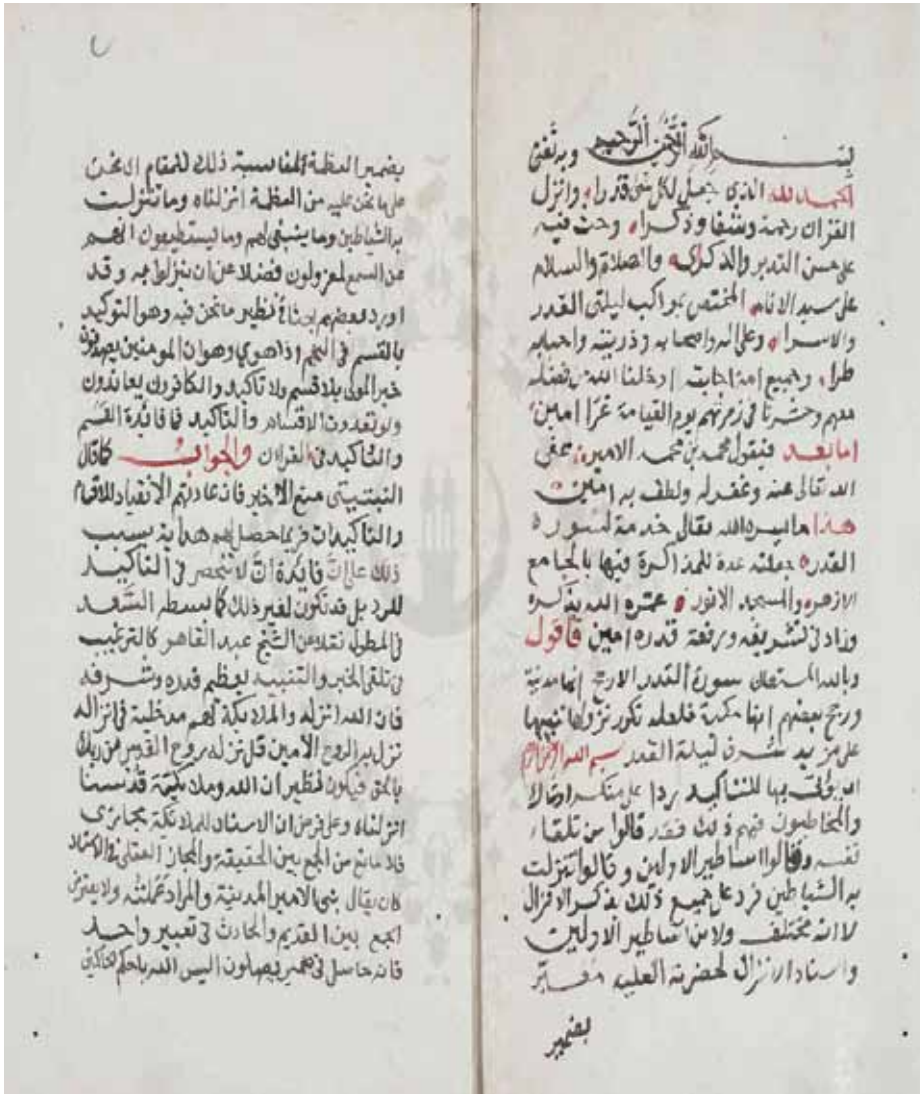 بسم الله الرحمن الرحيم وبه ثقتي
الحمد لله الذي جعل لكل شئ قدرا، وانزل
القران رحمة وشفا وذكرا، وحث فيه
على حسن التدبر والذكرى، والصلاة والسلام
على سيد الانام، المختص بمواكب ليلتي القدر
والاسراء، وعلى اله واصحابه وذريته واحبابه
طرا، وجميع امة اجابت ادخلنا الله بفضله
معهم وحشرنا في زمرتهم يوم القيامة غرا امين
اما بعد فيقول محمد بن محمد الامير، عفى
الله تعالى عنه وغفر له ولطف به امين
هذا ما يسره الله تعالى خدمة لسورة
القدر، جعلته عدة للمذاكرة فيها بالجامع
الازهر، والمسجد الانور، عمره الله بذكره
وزاد في تشريفه ورفعة قدره امين فاقول
وبالله المستعان سورة القدر الارجح انها مدنية
ورجح بعضهم انها مكية فلعله تكرر نزولها تنبيها
على مزيد شرف ليلة القدر بسم الله الرحمن الرحيم
يؤتى بها للتاكيد ردا على منكر او شاك
والمخاطبون فيهم ذلك فقد قالوا من تلقاء
نفسه وقالوا اساطير الاولين وقالوا تنزلت
به الشياطين فرد على جميع ذلك بذكر الانزال
لا انه مختلف ولا من اساطير الاولين
واسناد الانزال لحضرته العلية معبر
بضمير
٢
بضمير العظمة المناسبة ذلك للمقام اي نحن
على ما نحن عليه من العظمة انزلناه وما تنزلت
به الشياطين وما ينبغي لهم وما يستطيعون انهم
عن السمع لمعزولون فضلا عن ان ينزلوا به وقد
اورد بعضهم بحثا في نظير ما نحن فيه وهو التوكيد
بالقسم في النجم اذا هوى وهو ان المومنين يصدقون
خبر المولى بلا قسم ولا تاكيد والكافرون يعاندون
ولو تعددت الاقسام والتاكيد فما فائدة القسم
والتاكيد في القران والجواب كما قال
منع الاخير فان عادتهم الانقياد للاقسام
والتاكيدات فربما حصل لهم هداية بسبب
ذلك على ان فائدة ان لا تنحصر في التاكيد
للرد بل قد تكون لغير ذلك كما بسطه السعد
في المطول نقلا عن الشيخ عبد القاهر كالترغيب
في تلقي الخبر والتنبيه بعظيم قدره وشرفه
فان الله انزله والملائكة لهم مدخلية في انزاله
نزل به الروح الامين قل نزله روح القدس من ربك
بالحق فيكون نظير ان الله وملائكته
انزلناه وعلى فرض ان الاسناد للملائكة مجازي
فلا مانع من الجمع بين الحقيقة والمجاز العقلي في الاسناد
كان يقال بنى الامير المدينة والمراد عملته ولا يعترض
الجمع بين القديم والحادث في تعبير واحد
فانه حاصل في ضمير يصلون اليس الله باحكم الحاكمين